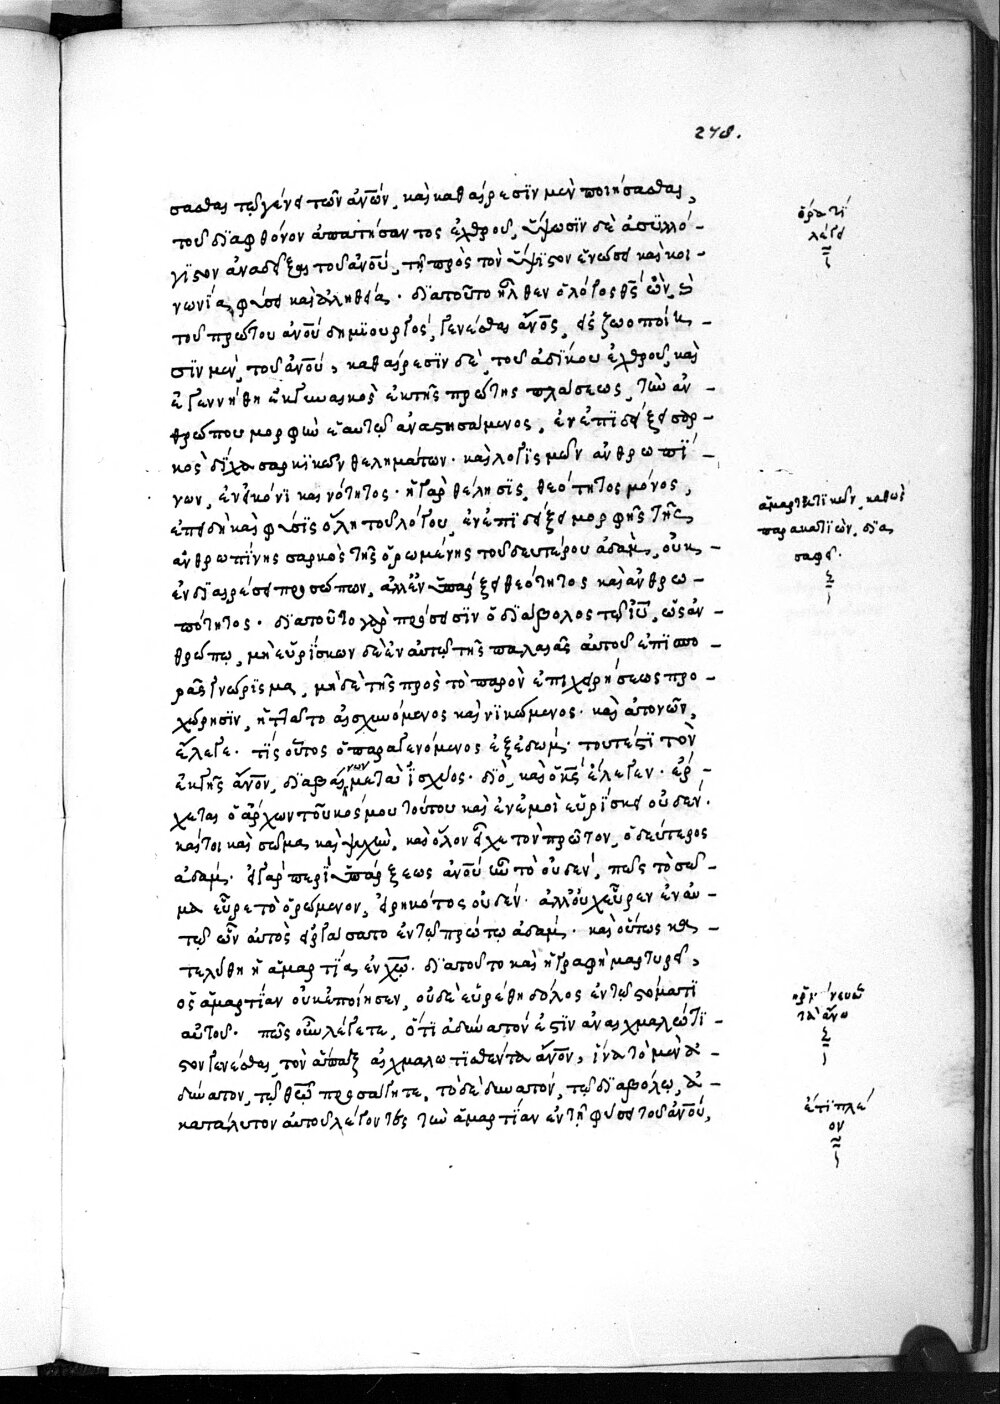 278.
σασθαι τῷ γένει τῶν ἀν̅ων, καὶ καθαίρεσϊν μὲν ποιήσασθαι,
τοῦ δϊαφθόνον ἀπατήσαντος ἐχθροῦ, ὕψωσϊν δὲ ἀσϋλλό-
γϊστον ἀναδεῖξαι τοῦ ἀν̅ου, τῇ πρὸς τὸν ὕψϊστον ἑνώσει καὶ κοι-
νωνίᾳ, φύσει καὶ ἀληθείᾳ. δϊατοῦτο ἦλθεν ὁ λόγος θ̅ς ὢν, ὁ
τοῦ πρώτου ἀν̅ου δημϊουργὸς, γενέσθαι ἄν̅ος, εἰς ζωοποίη-
σϊν μὲν, τοῦ ἀν̅ου, καθαίρεσϊν δὲ, τοῦ ἀδίκου ἐχθροῦ, καὶ
ἐγεννήθη ἐκ γυναικὸς ἐκ τῆς πρώτης πλάσεως, τὴν ἀν-
θρώπου μορφὴν ἑαυτῷ ἀναστησάμενος, ἐν ἐπϊδείξει σαρ-
κὸς δίχα σαρκϊκῶν θελημάτων. καὶ λογϊσμῶν ἀνθρωπΐ-
νων, ἐν εἰκόνϊ καινότητος. ἡ γὰρ θέλησϊς, θεότητος μόνος,
ἐπειδὴ καὶ φύσϊς ὅλη τοῦ λόγου, ἐν ἐπϊδείξει μορφῆς τῆς
ἀνθρωπίνης σαρκὸς τῆς ὁρωμένης τοῦ δευτέρου ἀδὰμ, οὐκ
ἐν δϊαιρέσει προσώπων, ἀλλ' ἐν ὑπάρξει θεότητος καὶ ἀνθρω-
πότητος. δϊατοῦτο γὰρ πρόσεισϊν ὁ δϊάβολος τῷ ἰ̅υ, ὡς ἀν-
θρώπῳ, μὴ εὑρΐσκων δὲ ἐν αὐτῷ τῆς παλαιᾶς αὐτοῦ ἐπϊσπο-
ρᾶς γνώρϊσμα, μηδὲ τῆς πρὸς τὸ παρὸν ἐπϊχειρήσεως προ-
χώρησϊν, ἡττᾶτο αἰσχυνόμενος καὶ νϊκώμενος. καὶ ἀτονῶν,
ἔλεγε. τίς οὗτος ὁ παραγενόμενος ἐξ ἐδώμ. τουτέστϊ τὸν
ἐκ γῆς ἄν̅ον, δϊαβαίνων μετὰ ἰσχύος. δϊὸ, καὶ ὁ κ̅ς ἔλεγεν. ἔρ-
χεται ὁ ἄρχων τοῦ κόσμου τούτου καὶ ἐν ἐμοὶ εὑρΐσκει οὐδὲν.
καίτοι καὶ σῶμα, καὶ ψυχὴν, καὶ ὅλον εἶχε τὸν πρῶτον, ὁ δεύτερος
ἀδάμ. εἰ γὰρ περὶ ὑπάρξεως ἀν̅ου ἦν τὸ οὐδὲν, πῶς τὸ σῶ-
μα εὗρε τὸ ὁρώμενον, εἰρηκότος οὐδέν. ἀλλ' οὐχ εὗρεν ἐν αὐ-
τῷ ὧν αὐτὸς εἰργάσατο ἐν τῷ πρώτῳ ἀδάμ. καὶ οὕτως κα-
τελύθη ἡ ἁμαρτία, ἐν χ̅ω. δϊατοῦτο καὶ ἡ γραφὴ μαρτυρεῖ,
ὃς ἁμαρτΐαν οὐκ ἐποίησεν, οὐδὲ εὑρέθη δόλος ἐν τῷ στόματϊ
αὐτοῦ. πῶς οὖν λέγετε, ὅτϊ ἀδύνατόν ἐστϊν ἀναιχμαλώτϊ-
στον γενέσθαι, τὸν ἅπαξ αἰχμαλωτϊσθέντα ἄν̅ον, ἵνα τὸ μὲν ἀ-
δύνατον, τῷ θε̅ω προσάπτητε, τὸ δὲ δυνατὸν, τῷ δϊαβόλῳ, ἀ-
κατάλυτον αὐτοῦ λέγοντες τὴν ἁμαρτΐαν ἐν τῇ φύσει τοῦ ἀν̅ου,
ὅρα τϊ
λέγει
ἁμαρτητϊκῶν, καθὼς
παρακατϊὼν, δϊα
σαφεῖ.
ἑρμήνευσϊ
τὰ ἄνω
ἐτϊ πλέ
ον